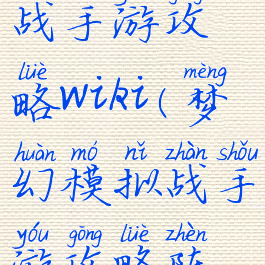 战手游攻
lüè mèng
略wiki(梦
huàn mó nǐ zhàn shǒu
幻模拟战手
yóu gōng lüè zhèn
游攻略阵